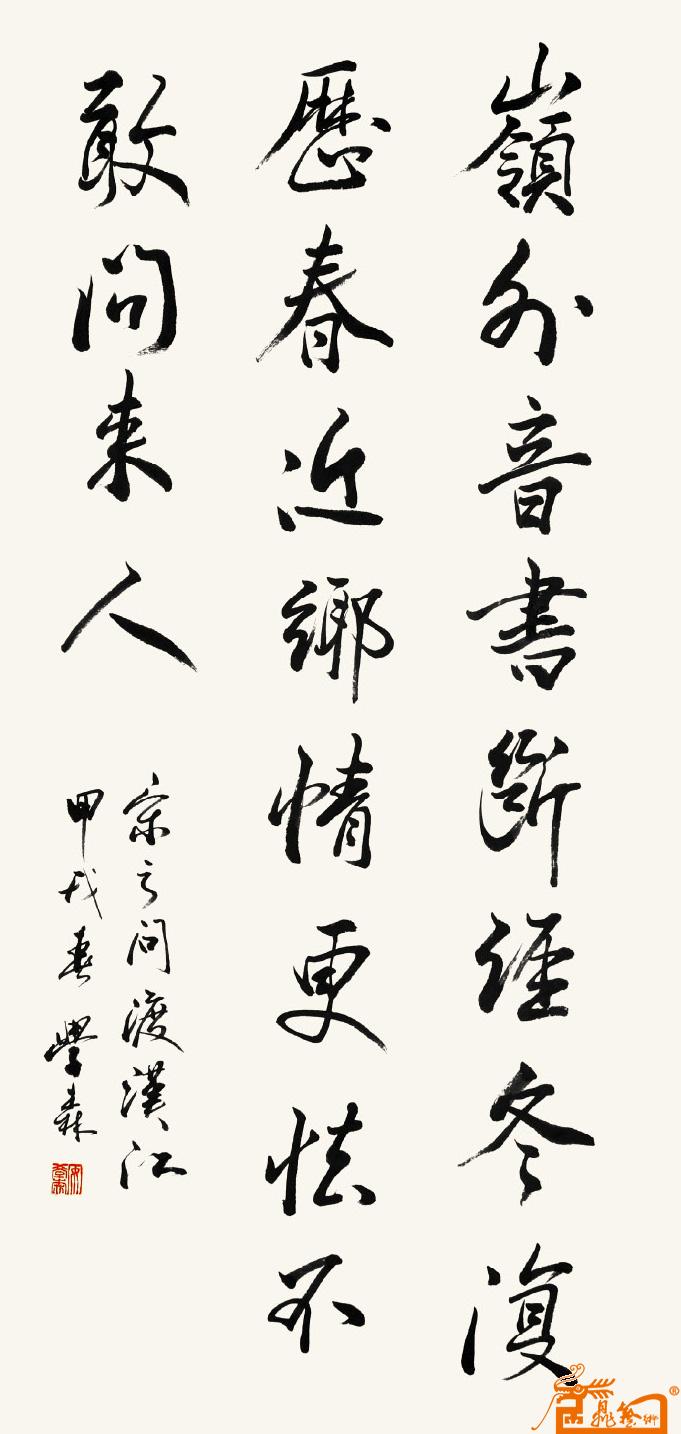 嶺外音書斷經冬復
歷春近鄉情更怯不
敢問來人
宋之問渡漢江
甲戌春學森